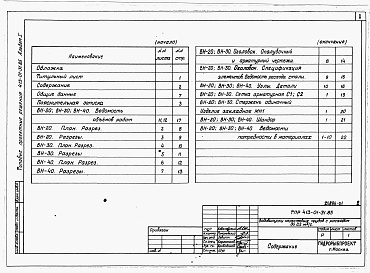 Типовые проектные решения 413-01-31.85 Альбом I
1
(начало)
Наименование
№№ листа
№№ стр.
Обложка
Титульный лист 1
Содержание 2
Общие данные 7
Пояснительная записка 3
ВН-20; ВН-30; ВН-40. Ведомость
объёмов работ 11,12 17
ВН-20. План. Разрез. 2 8
ВН-20. Разрезы. 3 9
ВН-30. План. Разрез 4 10
ВН-30. Разрезы 5 11
ВН-40. План. Разрез 6 12
ВН-40. Разрезы. 7 13
(окончание)
ВН-20; ВН-30. Оголовок. Опалубочный
и арматурный чертежи. 8 14
ВН-20; ВН-30. Оголовок. Спецификация
элементов. Ведомость расхода стали. 9 15
ВН-20; ВН-30; ВН-40. Узлы. Детали 10 16
ВН-20; ВН-30. Сетка арматурная С1; С2 1 19
ВН-20; ВН-30. Стержень одиночный
Изделие закладное МН1 1 20
ВН-20; ВН-30; ВН-40. Шандор 1 21
ВН-20; ВН-30; ВН-40 Ведомости
потребности в материалах 1-10 22
ТПР 413-01-31.85
Привязан
Содержание
Р 1
ГИДРОРЫБПРОЕКТ
г. Москва